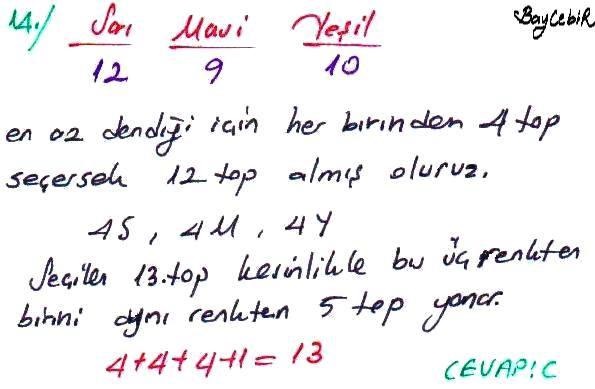 14./ Sarı Mavi Yeşil BayCebiR
12 9 10
en az dendiği için her birinden 4 top
seçersek 12 top almış oluruz.
4S, 4M, 4Y
Seçilen 13.top kesinlikle bu üç renkten
birini aynı renkten 5 top yapar.
4+4+4+1= 13
CEVAP:C